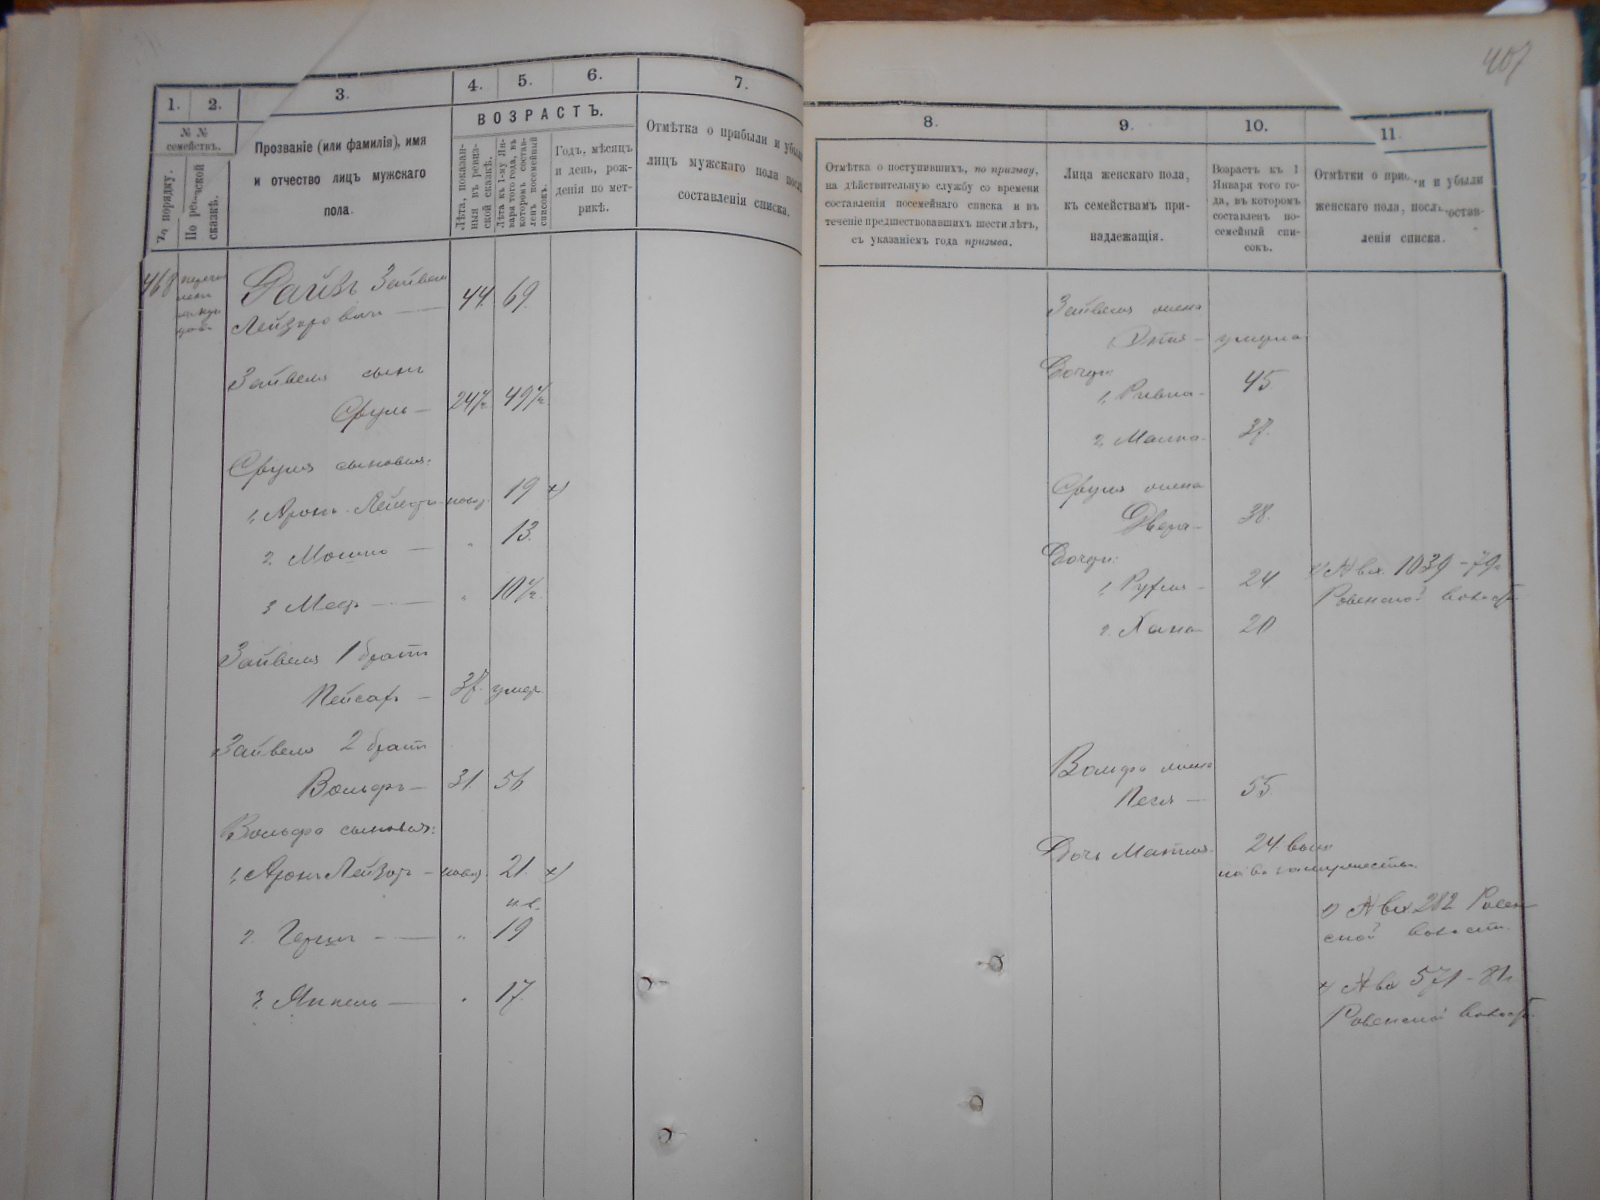 407
1. 2. 3. 4. 5. 6. 7.
№ №
семействъ.
По порядку.
По ревизской
сказкѣ.
Прозваніе (или фамилія), имя
и отчество лицъ мужскаго
пола.
ВОЗРАСТЪ.
Лѣта, показан-
ныя въ ревиз-
ской сказкѣ.
Лѣта къ 1-му Ян-
варя того года, въ
которомъ состав-
ленъ посемейный
списокъ.
Годъ, мѣсяцъ
и день, рож-
денія по мет-
рикѣ.
Отмѣтка о прибыли и убыли
лицъ мужскаго пола послѣ
составленія списка.
8. 9. 10. 11.
Отмѣтка о поступившихъ, по призыву,
на дѣйствительную службу со времени
составленія посемейнаго списка и въ
теченіе предшествовавшихъ шести лѣтъ,
съ указаніемъ года призыва.
Лица женскаго пола,
къ семействамъ при-
надлежащія.
Возрастъ къ 1
Января того го-
да, въ которомъ
составленъ по-
семейный спи-
сокъ.
Отмѣтки о при и убыли
женскаго пола, послѣ состав-
ленія списка.
468 Зайвель 44 69
Лейзеровичъ
Зайвеля сынъ
Сруль 24½ 49½
Сруля сыновья:
1, Аронъ 19 х)
2, Мошко " 13
3 " 10½
Зайвеля 1 братъ
Пейсахъ 37. умер.
Зайвеля 2 братъ
Вольфъ 31 56
Вольфа сыновья:
1, Аронъ Лейзоръ 21. х)
2. Герш " 19
3. Янкель " 17.
Зайвеля жена
умерла
Дочери:
1, Ривка 45
2, 37.
Сруля жена
Двера 38.
Дочери:
1, Рухля 24
2. Хана 20
Вольфа жена
Песя 55
Дочь Матля 24
х) № 1039 - 79
Ровенской волости
№ 282
волости
х) № 571 - 81
Ровенской волости